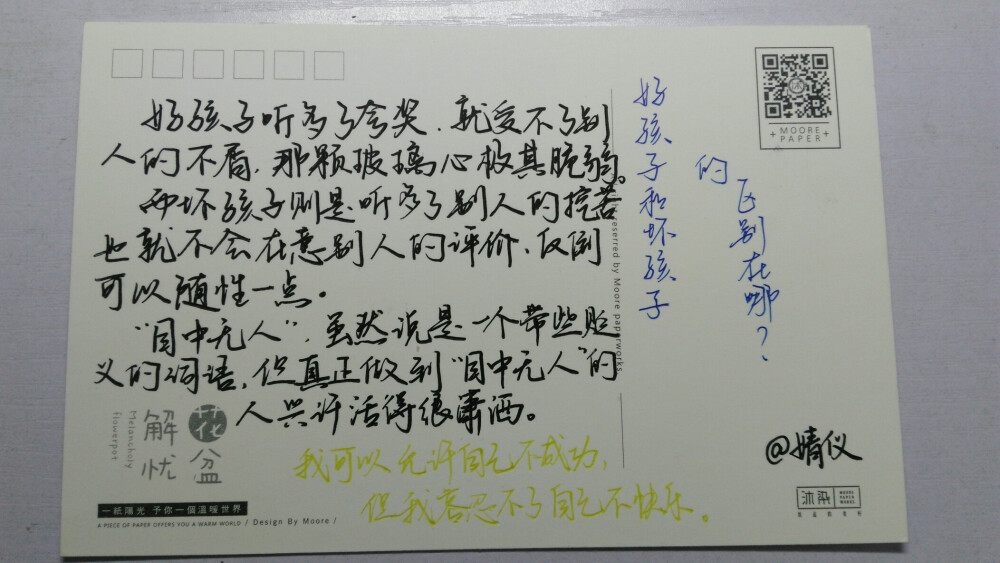 好孩子听多了夸奖、就受不了别
人的不屑，那颗玻璃心极其脆弱。
而坏孩子则是听多了别人的挖苦
也就不会在意别人的评价，反倒
可以随性一点。
“目中无人”，虽然说是一个带些贬
义的词语，但真正做到“目中无人”的
人兴许活得很潇洒。
我可以允许自己不成功，
但我容忍不了自己不快乐。
好孩子和坏孩子
的
区别在哪？
@婧仪
MOORE
PAPER
reserred by Moore paperworks
解忧
花盆
Melancholy
flowerpot
一紙陽光 予你一個溫暖世界
A PIECE OF PAPER OFFERS YOU A WARM WORLD / Design By Moore /
沐染
MOORE
PAPER
WORKS